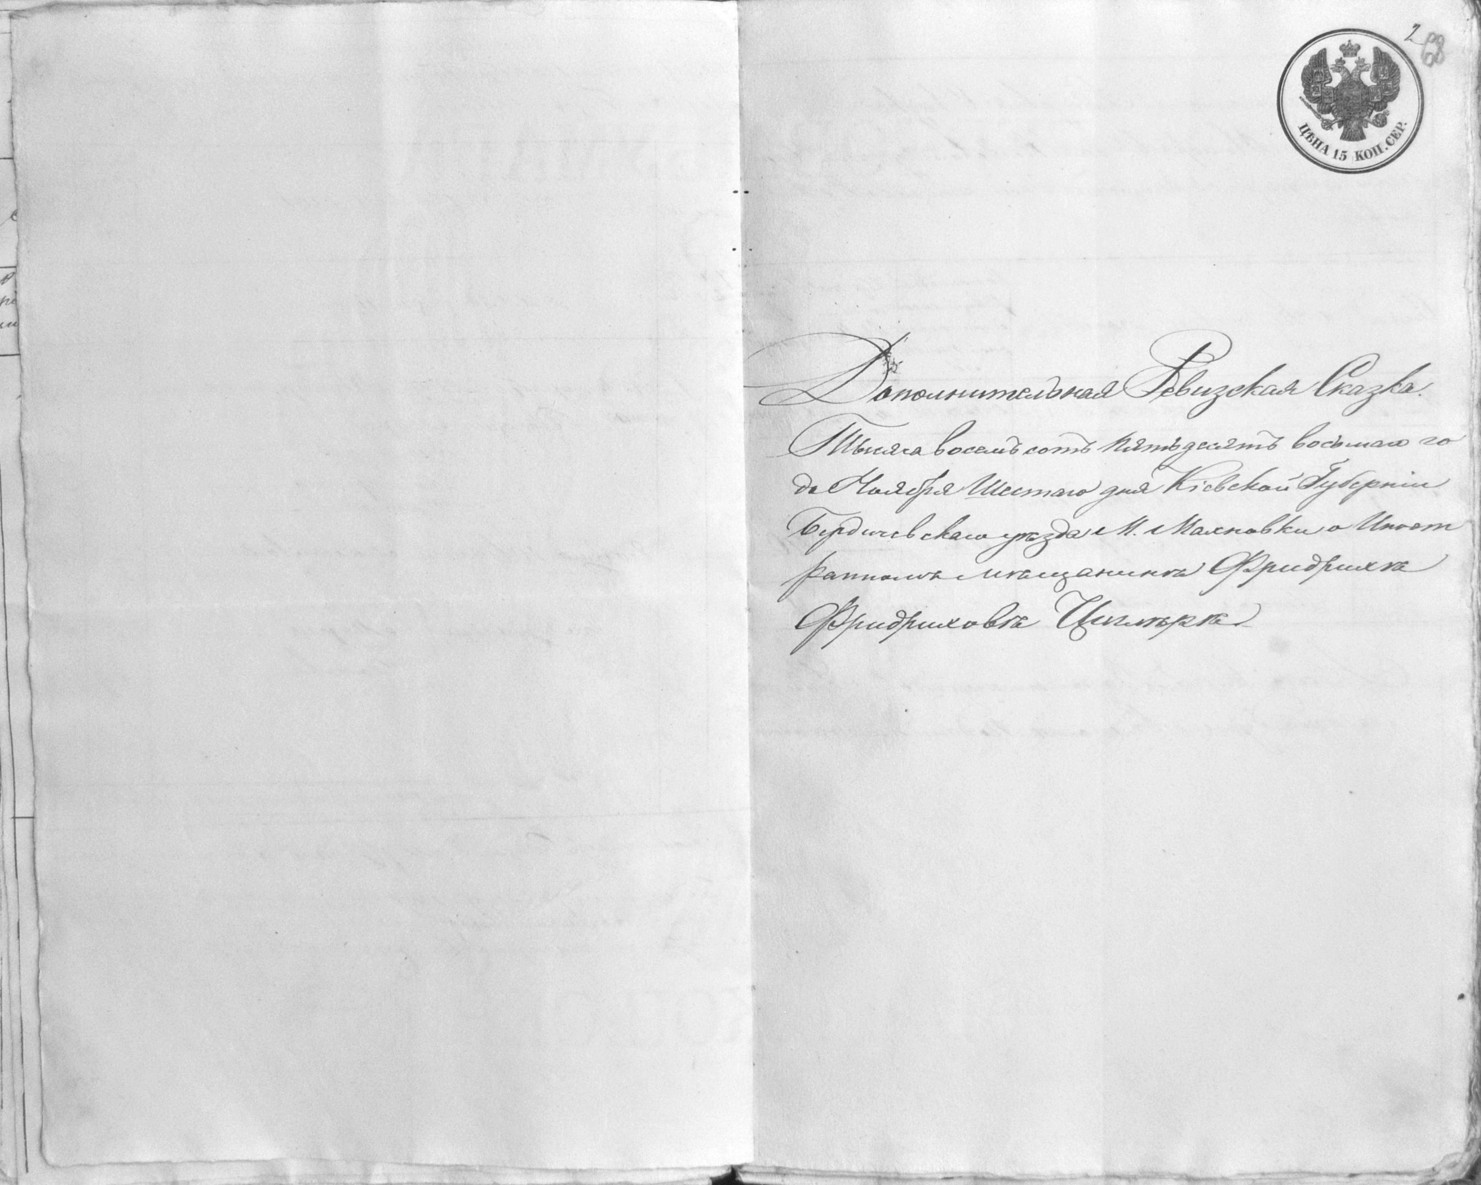 2
68
ЦѢНА 15 КОП. СЕР.
Дополнительная Ревизская Сказка.
Тысяча восемъ сотъ пятьдесятъ восьмаго го
да Ноября Шестаго дня Кіевской Губерніи
Бердичевскаго уезда М. Махновки о Иност
ранномъ мѣщанинѣ Фридрихѣ
Фридриховѣ Циглѣрѣ